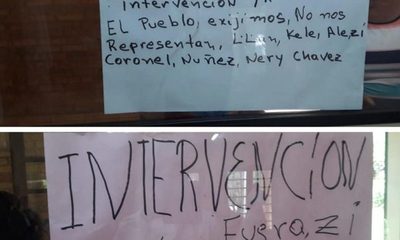 Intervención ya
EL Pueblo, exijimos, No nos
Representan, Lilian, Kele, Alezi
Coronel, Nuñez, Nery Chavez
INTERVENCIÓN
Fuera, zi